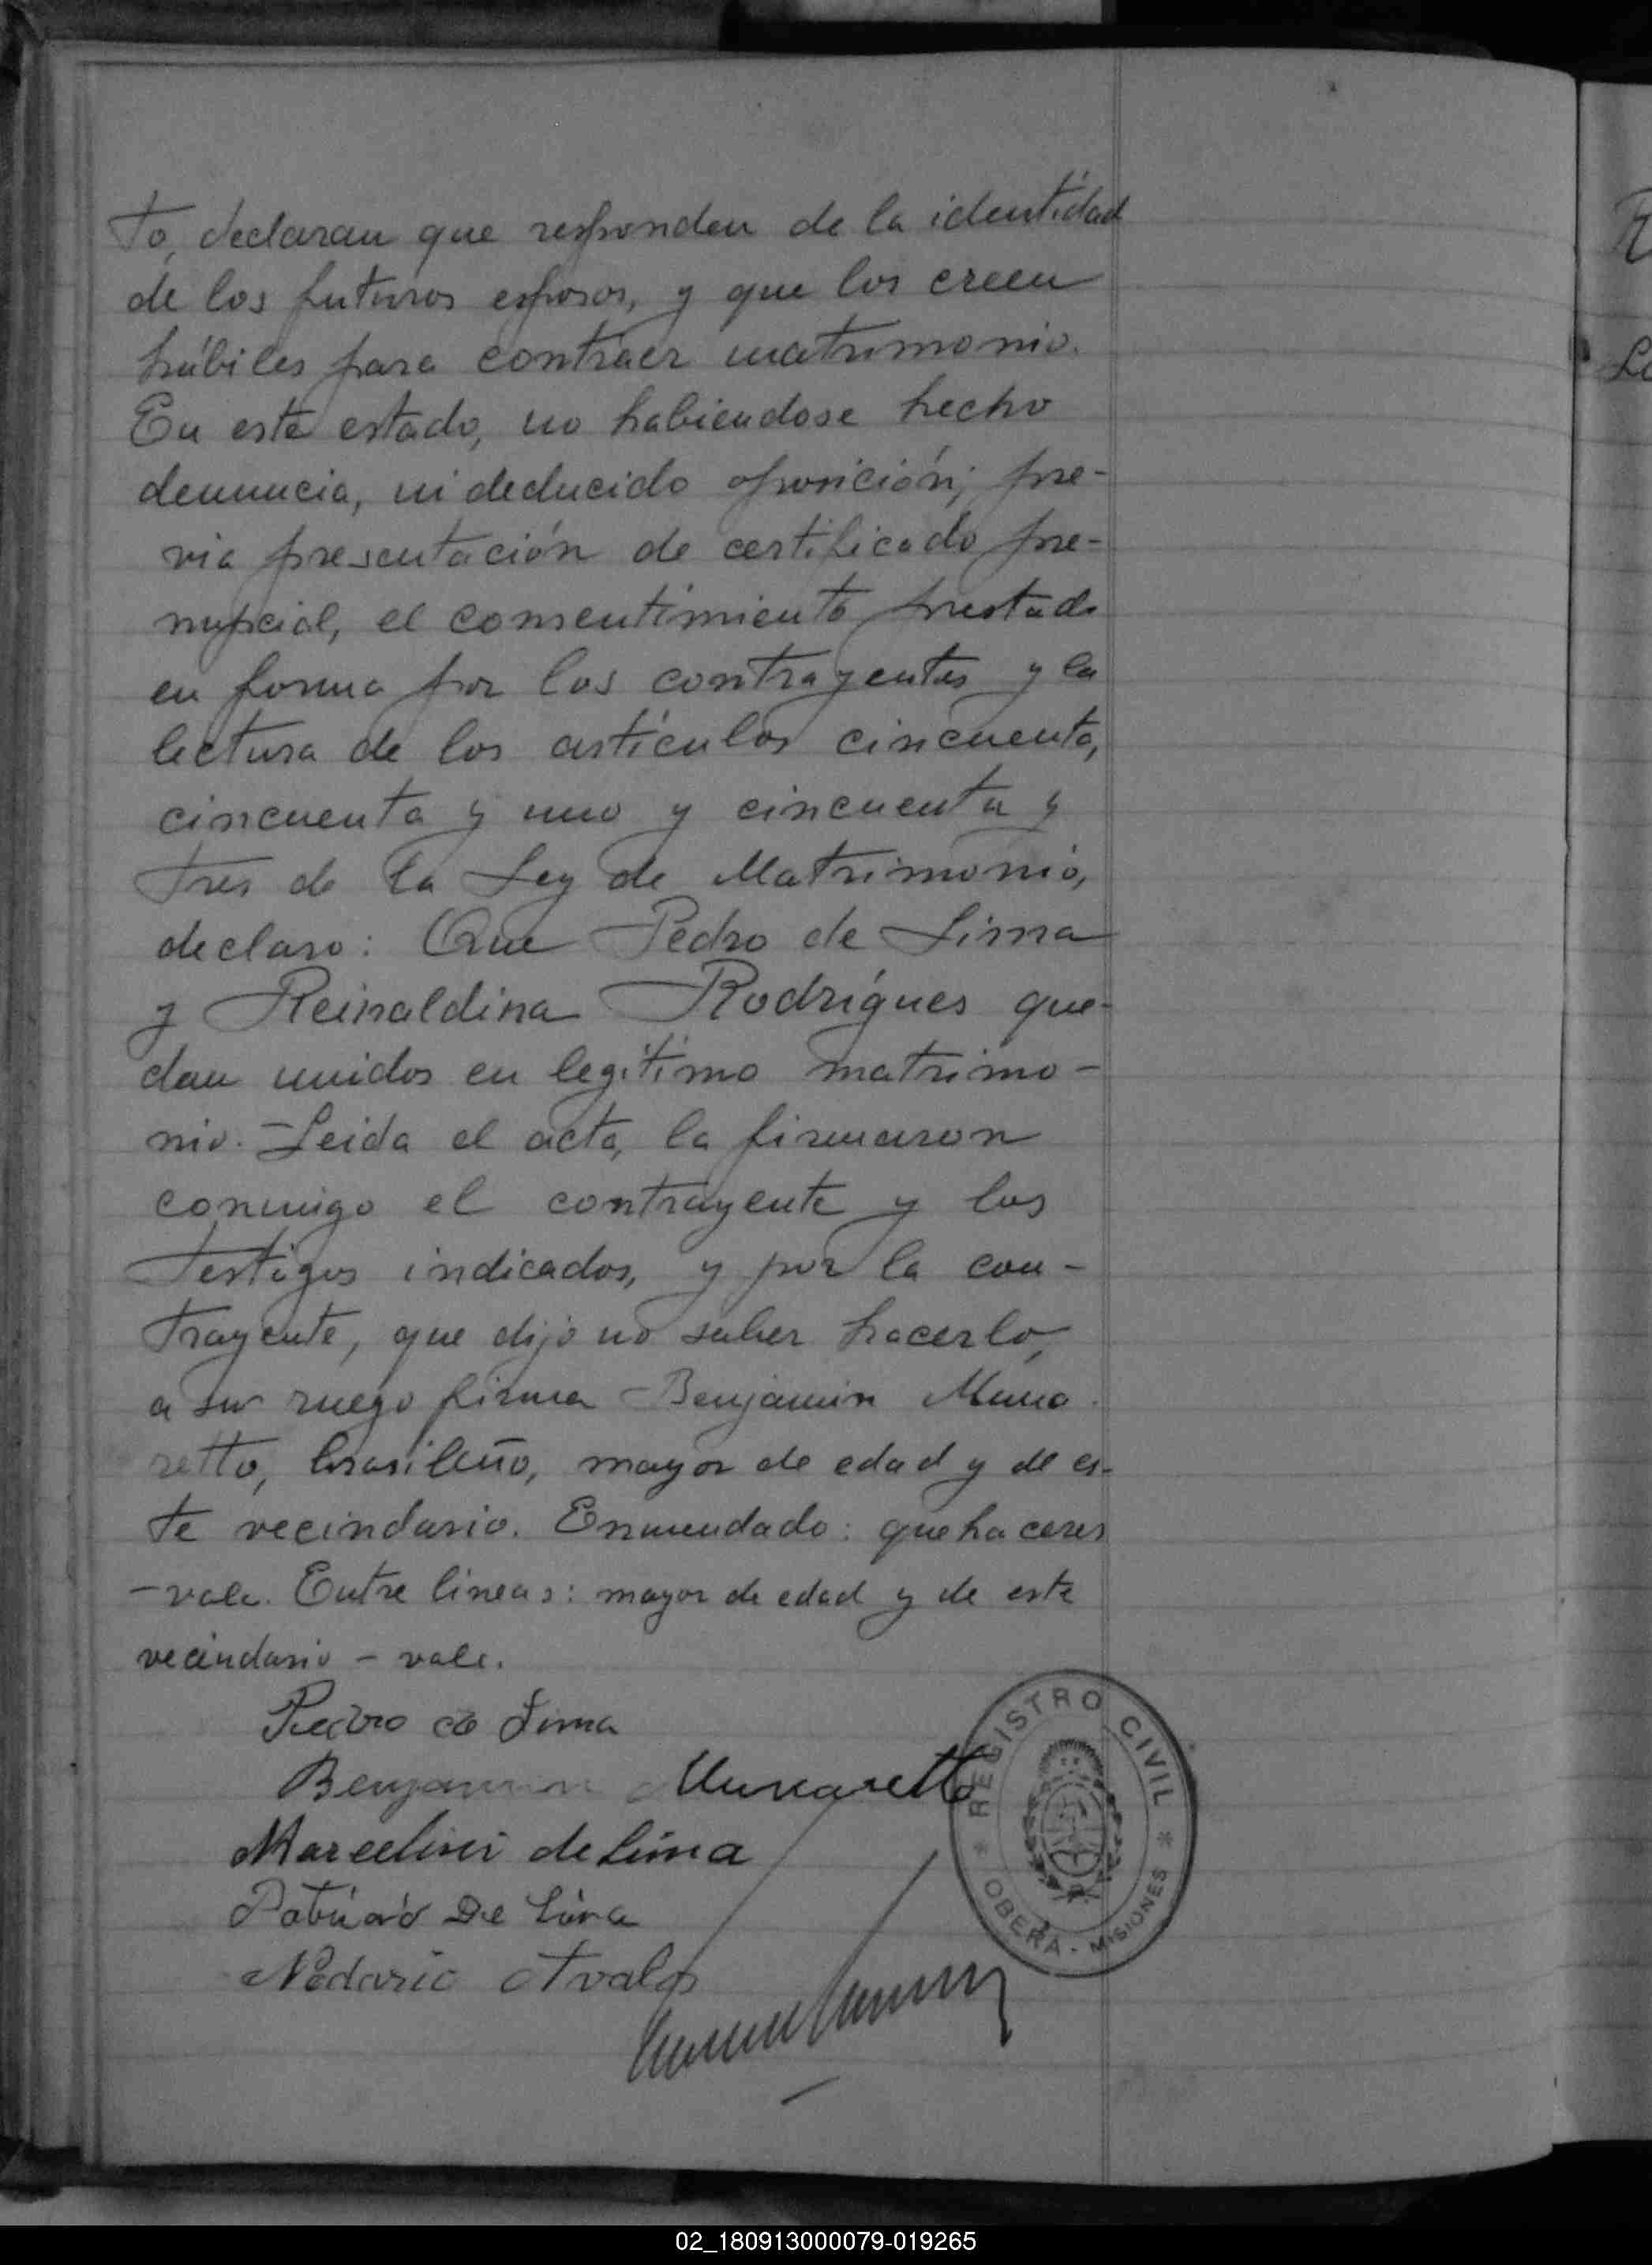 to, declaran que responden de la identidad
de los futuros esposos, y que los creen
hábiles para contraer matrimonio.
En este estado, no habiendose hecho
denuncia, ni deducido oposición; pre-
via presentación de certificado pre-
nupcial, el consentimiento prestado
en forma por los contrayentes y la
lectura de los artículos cincuenta,
cincuenta y uno y cincuenta y
tres de la Ley de Matrimonio,
declaro: Que Pedro de Lima
y Reinaldina Rodrígues que-
dan unidos en legítimo matrimo-
nio. Leida el acta, la firmaron
conmigo el contrayente y los
testigos indicados, y por la con-
trayente, que dijo no saber hacerlo,
a su ruego firma Benjamin Muna
retto, brasileño, mayor de edad y de es-
te vecindario. Enmendado: quehaceres
-vale. Entre líneas: mayor de edad y de este
vecindario - vale.
Pedro de Lima
Benjamin Munaretto
Marcelino de Lima
De Lima
Nedario Avalos
REGISTRO CIVIL
OBERÁ - MISIONES
Lo
02_180913000079-019265